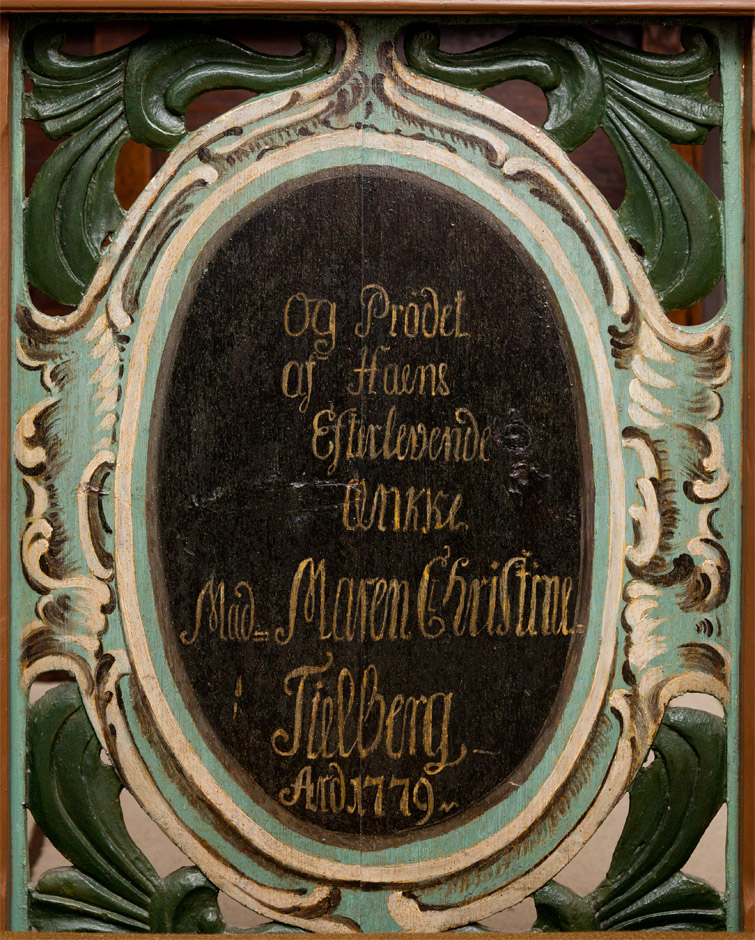 Og Prödet
af Haens
Efterlevende
Ænkke
Mad= Maren Christine=
Tielberg
Aɴd 1779